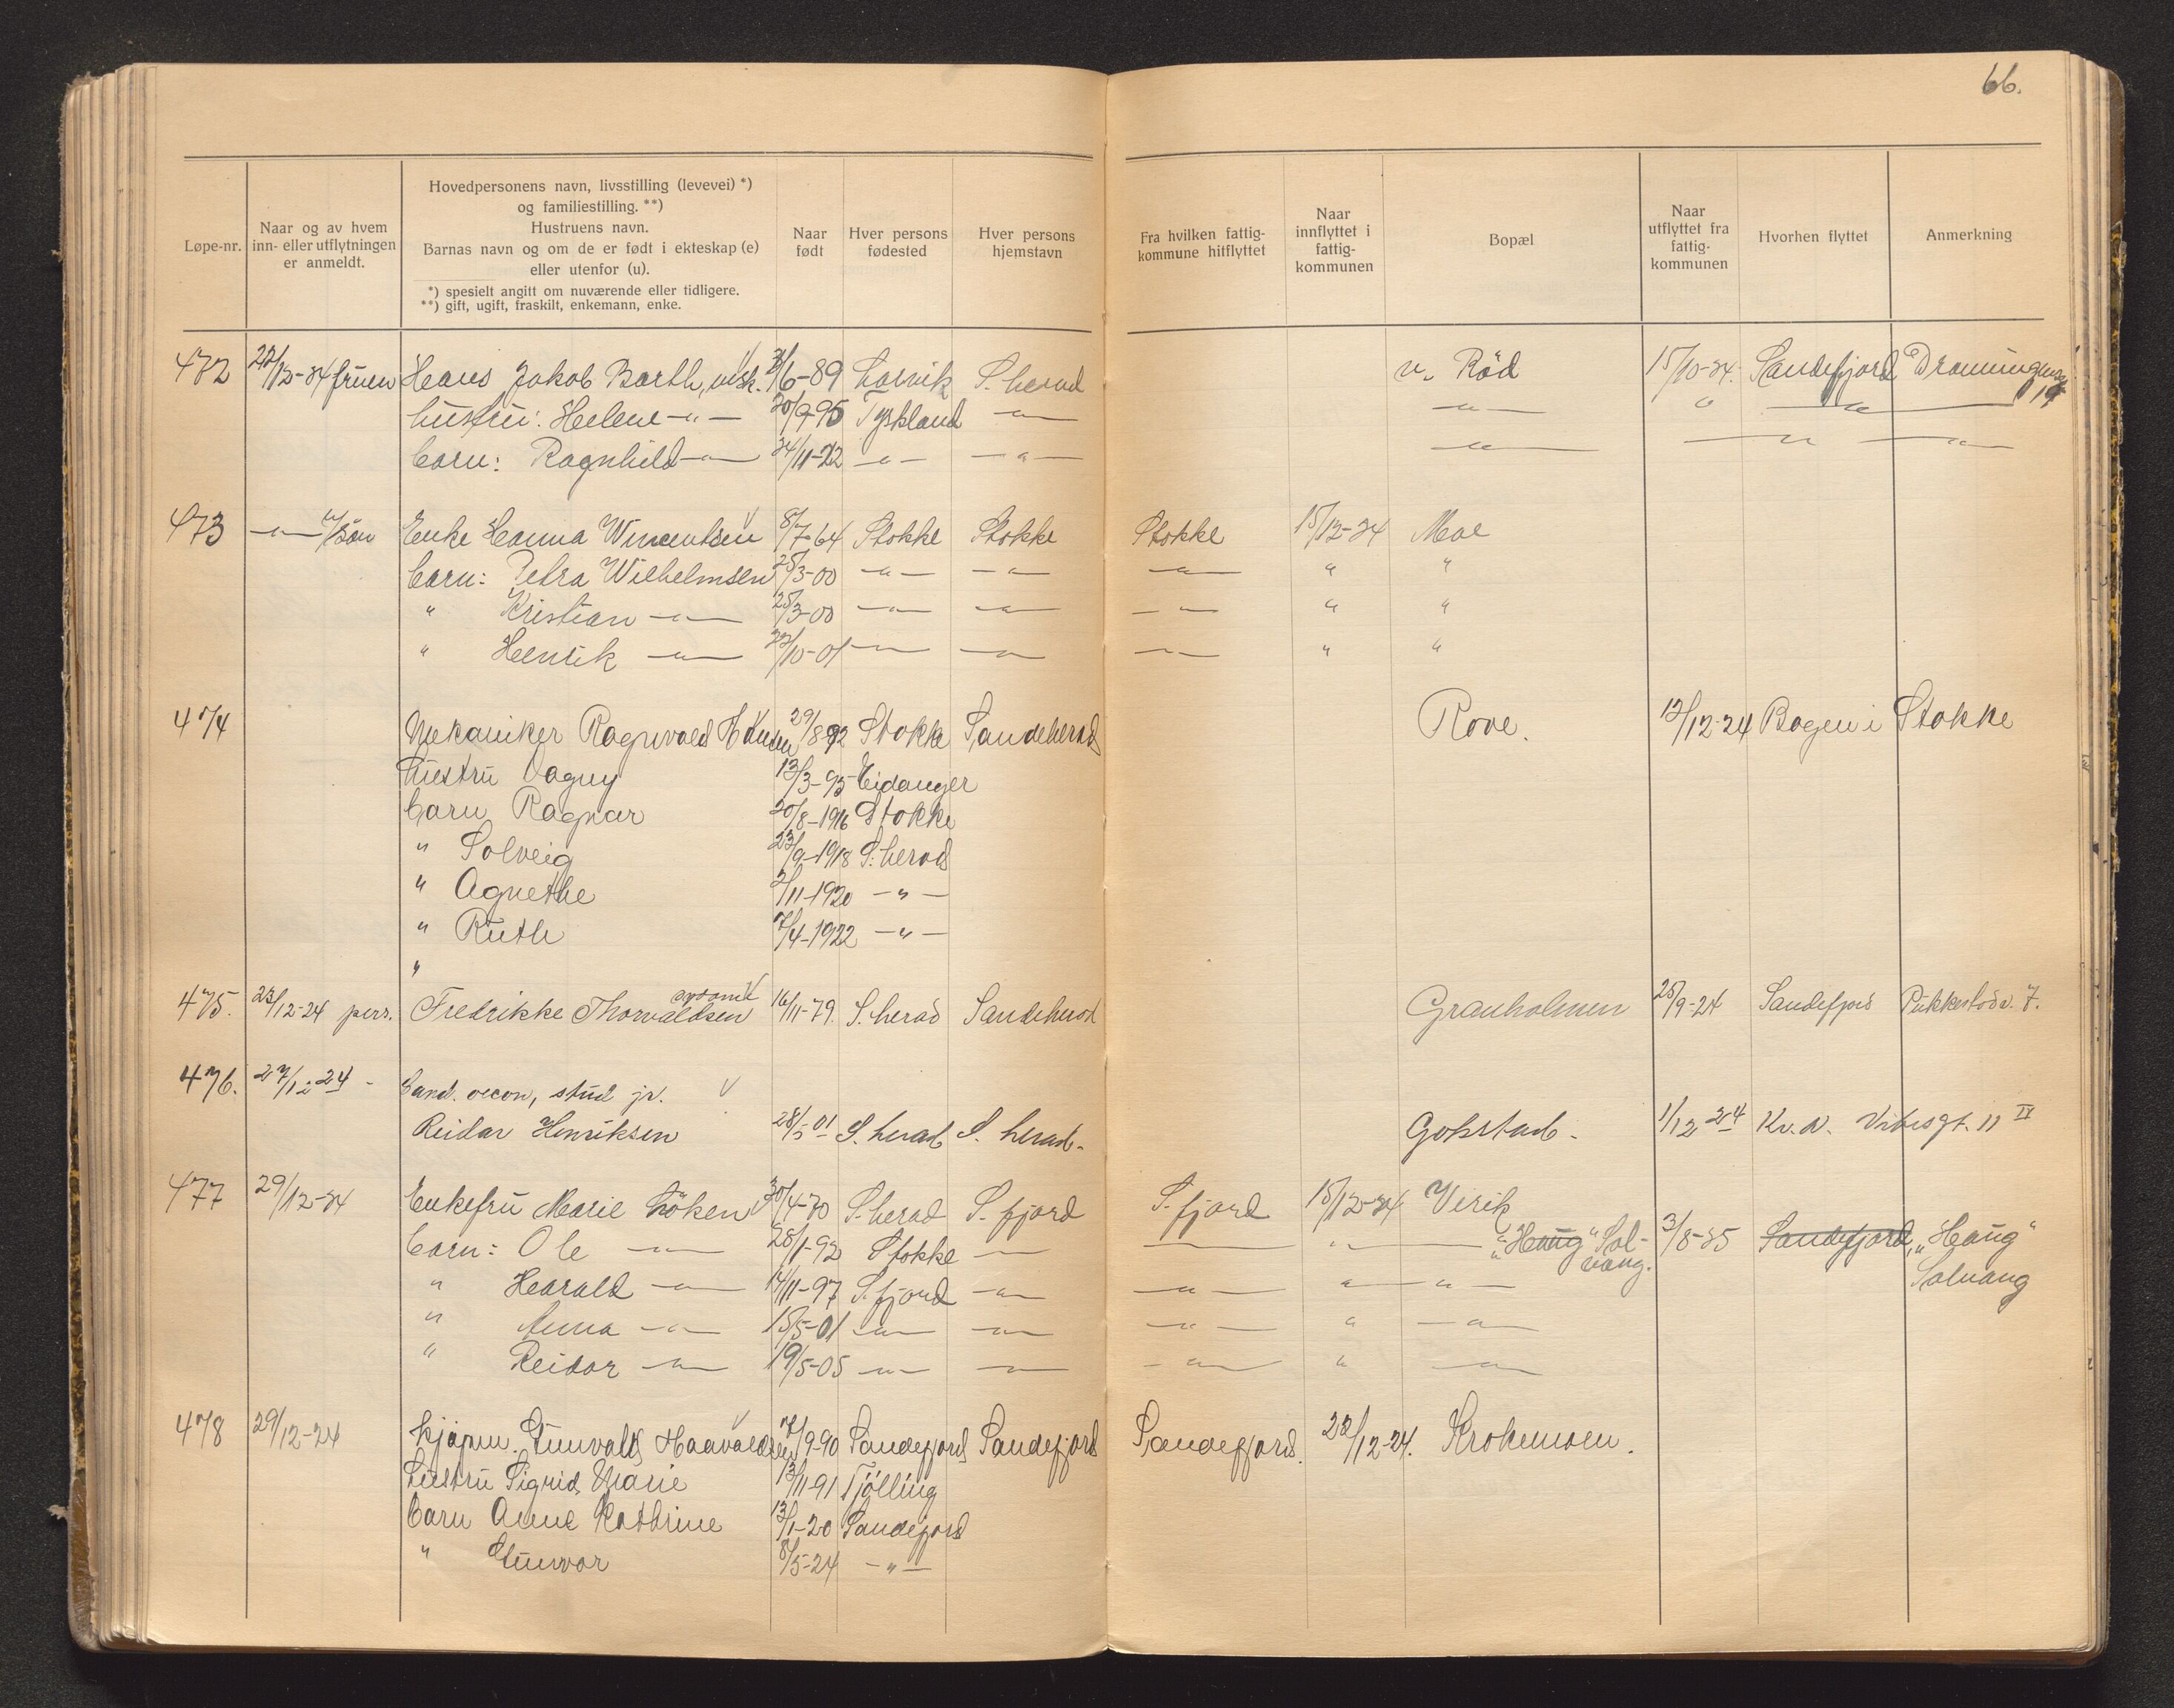 66.
Løpe-nr.
Naar og av hvem
inn- eller utflytningen
er anmeldt.
Hovedpersonens navn, livsstilling (levevei) *)
og familiestilling. **)
Hustruens navn.
Barnas navn og om de er født i ekteskap (e)
eller utenfor (u).
*) spesielt angitt om nuværende eller tidligere.
**) gift, ugift, fraskilt, enkemann, enke.
Naar
født
Hver persons
fødested
Hver persons
hjemstavn
Fra hvilken fattig-
kommune hitflyttet
Naar
innflyttet i
fattig-
kommunen
Bopæl
Naar
utflyttet fra
fattig-
kommunen
Hvorhen flyttet
Anmerkning
472 22/12-24 fruen Hans Jakob Barth, /6-89 Larvik S. herad n. Röd 15/10-24. Sandefjord Dronningens
hustru: Helene -"- 20/9-95 Tyskland -"- -"- " -"- 14
barn: Ragnhild -"- 24/11-22 -"- -"- -"- -"- -"-
473 -"- Enke Hanna Wincentsen 8/7-64 Stokke Stokke Stokke 15/12-24 Moe
barn: Petra Wilhelmsen 25/3-00 -"- -"- -"- " "
" Kristian -"- 25/3-00 -"- -"- -"- " "
" Henrik -"- 22/10-01 -"- -"- -"- " "
474 Mekaniker Ragnvald 29/8 92 Stokke Sandeherad Rove. 12/12-24 Bogen i Stokke
hustru Dagny 13/3-95 Eidanger
barn Ragnar 20/8-1916 Stokke
" Solveig 23/9-1918 S. herad
" Agnethe 2/11-1920 -"-
" Ruth 7/4-1922 -"-
"
475. 23/12-24 pers. Fredrikke Thorvaldsen 16/11-79. S. herad Sandeherad Granholmen 25/9-24 Sandefjord Pukkestadv. 7.
476. 27/12 24 - Cand. oecon, stud jr.
Reidar Henriksen 28/5 01 S. herad S. herad. Gokstad. 1/12 24 Kr. a. Vibesgt. 11 II
477 29/12-24 Enkefru Marie Löken 30/4-70 S. herad S. fjord S. fjord 15/12-24 Virik
barn: Ole -"- 28/1-92 Stokke -"- -"- -"- "Haug" Sol- 3/8-25 Sandefjord, "Haug"
vang. Solvang
" Harald -"- 14/11-97 S. fjord -"- -"- " -"-
" Anna -"- 15/5-01 -"- -"- -"- " -"-
" Reidar -"- 19/5-05 -"- -"- -"- " -"-
478 29/12-24 Kjøpm. Gunvald Haavaldsen 7/9-90 Sandefjord Sandefjord Sandefjord. 22/12-24. Krokemoen.
hustru Sigrid Marie 13/11-91 Tjölling
barn Anne Kathrine 13/1-20 Sandefjord
" Gunvor 8/5-24 -"-